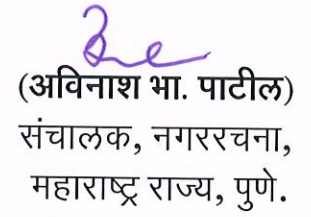 (अविनाश भा. पाटील)
संचालक, नगररचना,
महाराष्ट्र राज्य, पुणे.